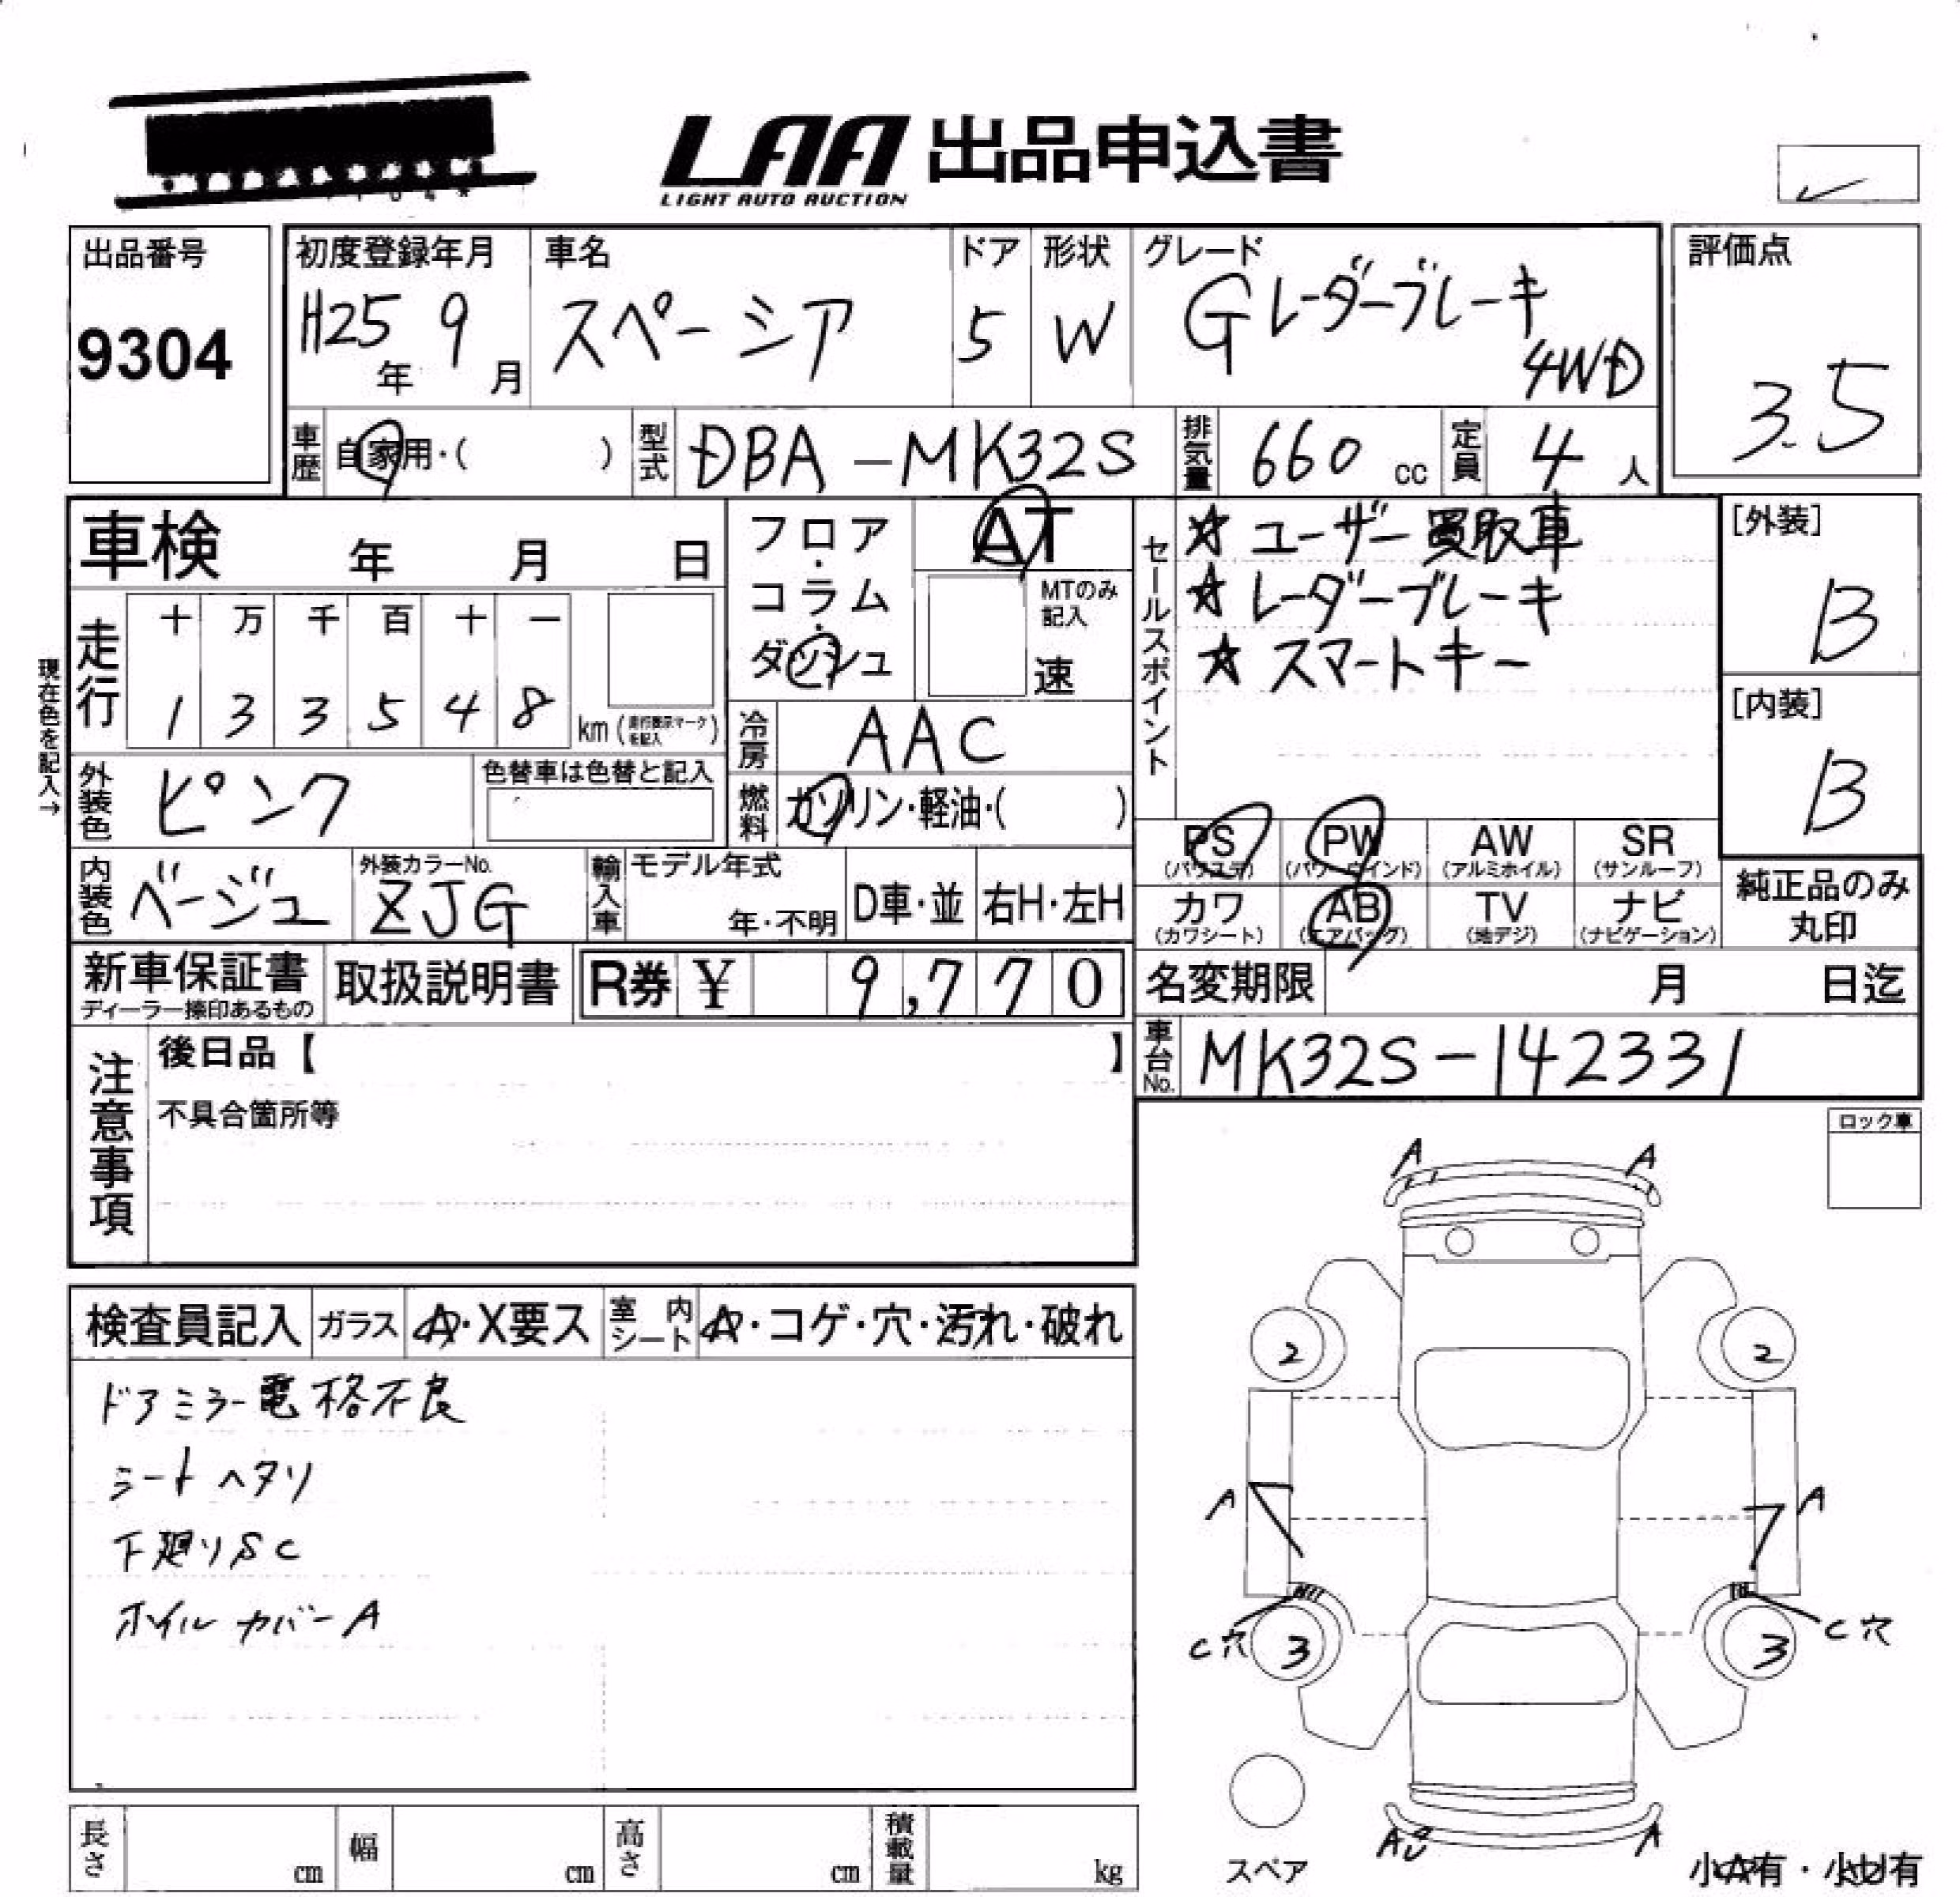 LAA 出品申込書
LIGHT AUTO AUCTION
出品番号
9304
初度登録年月
H25年 9月
車名
スペーシア
ドア
5
形状
W
グレード
Gレーダーブレーキ
4WD
評価点
3.5
車歴
自家用・( )
型式
DBA-MK32S
排気量
660 cc
定員
4 人
車検 年 月 日
走行
十 万 千 百 十 一
1 3 3 5 4 8
km (走行表示マークを記入)
現在色を記入→
外装色
ピンク
色替車は色替と記入
内装色
ベージュ
外装カラーNo.
ZJG
フロア・コラム・ダッシュ
AT
MTのみ記入
速
冷房
AAC
燃料
ガソリン・軽油・( )
輸入車
モデル年式
年・不明
D車・並
右H・左H
セールスポイント
☆ ユーザー買取車
☆ レーダーブレーキ
☆ スマートキー
[外装]
B
[内装]
B
PS PW AW SR
(パワステ) (パワーウインド) (アルミホイル) (サンルーフ)
カワ AB TV ナビ
(カワシート) (エアバッグ) (地デジ) (ナビゲーション)
純正品のみ
丸印
新車保証書
ディーラー捺印あるもの
取扱説明書
R券 ¥ 9,770
名変期限 月 日迄
車台No.
MK32S-142331
注意事項
後日品【 】
不具合箇所等
ロック車
検査員記入
ガラス
A・X要ス
室内シート
A・コゲ・穴・汚れ・破れ
ドアミラー電格不良
シートヘタリ
下廻りSC
ホイルカバーA
A A
2 2
A A
C穴 3 3 C穴
A A
スペア
小A有・小U有
長さ cm
幅 cm
高さ cm
積載量 kg